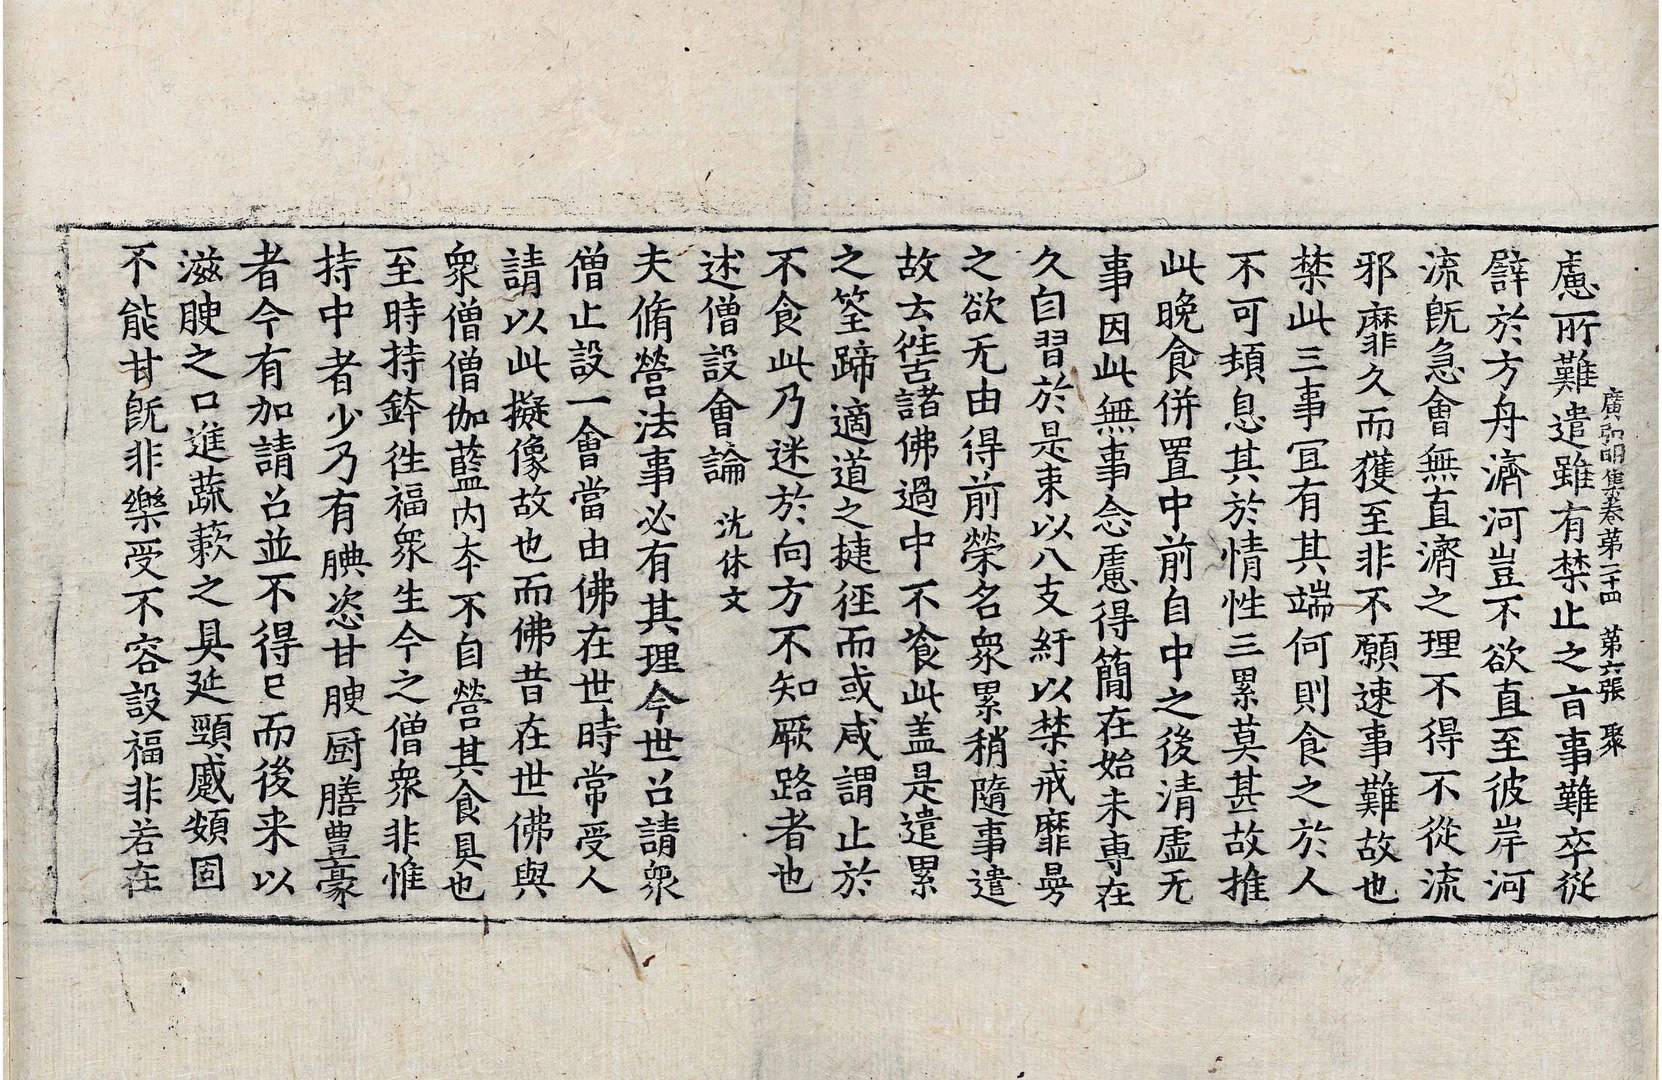 廣弘明集卷第二十四 第六張 聚
慮所難遣雖有禁止之旨事難卒從
譬於方舟濟河豈不欲直至彼岸河
流旣急會無直濟之理不得不從流
邪靡久而獲至非不願速事難故也
禁此三事冝有其端何則食之於人
不可頓息其於情性三累莫甚故推
此晚食併置中前自中之後清虛无
事因此無事念慮得簡在始未專在
久自習於是束以八支紆以禁戒靡曼
之欲无由得前榮名衆累稍隨事遣
故云徃古諸佛過中不飡此盖是遣累
之筌蹄適道之捷徑而或咸謂止於
不食此乃迷於向方不知厥路者也
述僧設會論 沈休文
夫脩營法事必有其理今世召請衆
僧止設一會當由佛在世時常受人
請以此擬像故也而佛昔在世佛與
衆僧僧伽藍內夲不自營其食具也
至時持鉢徃福衆生今之僧衆非惟
持中者少乃有腆恣甘腴厨膳豊豪
者今有加請召並不得已而後来以
滋腴之口進蔬蔌之具延頸蹙頞固
不能甘旣非樂受不容設福非若在